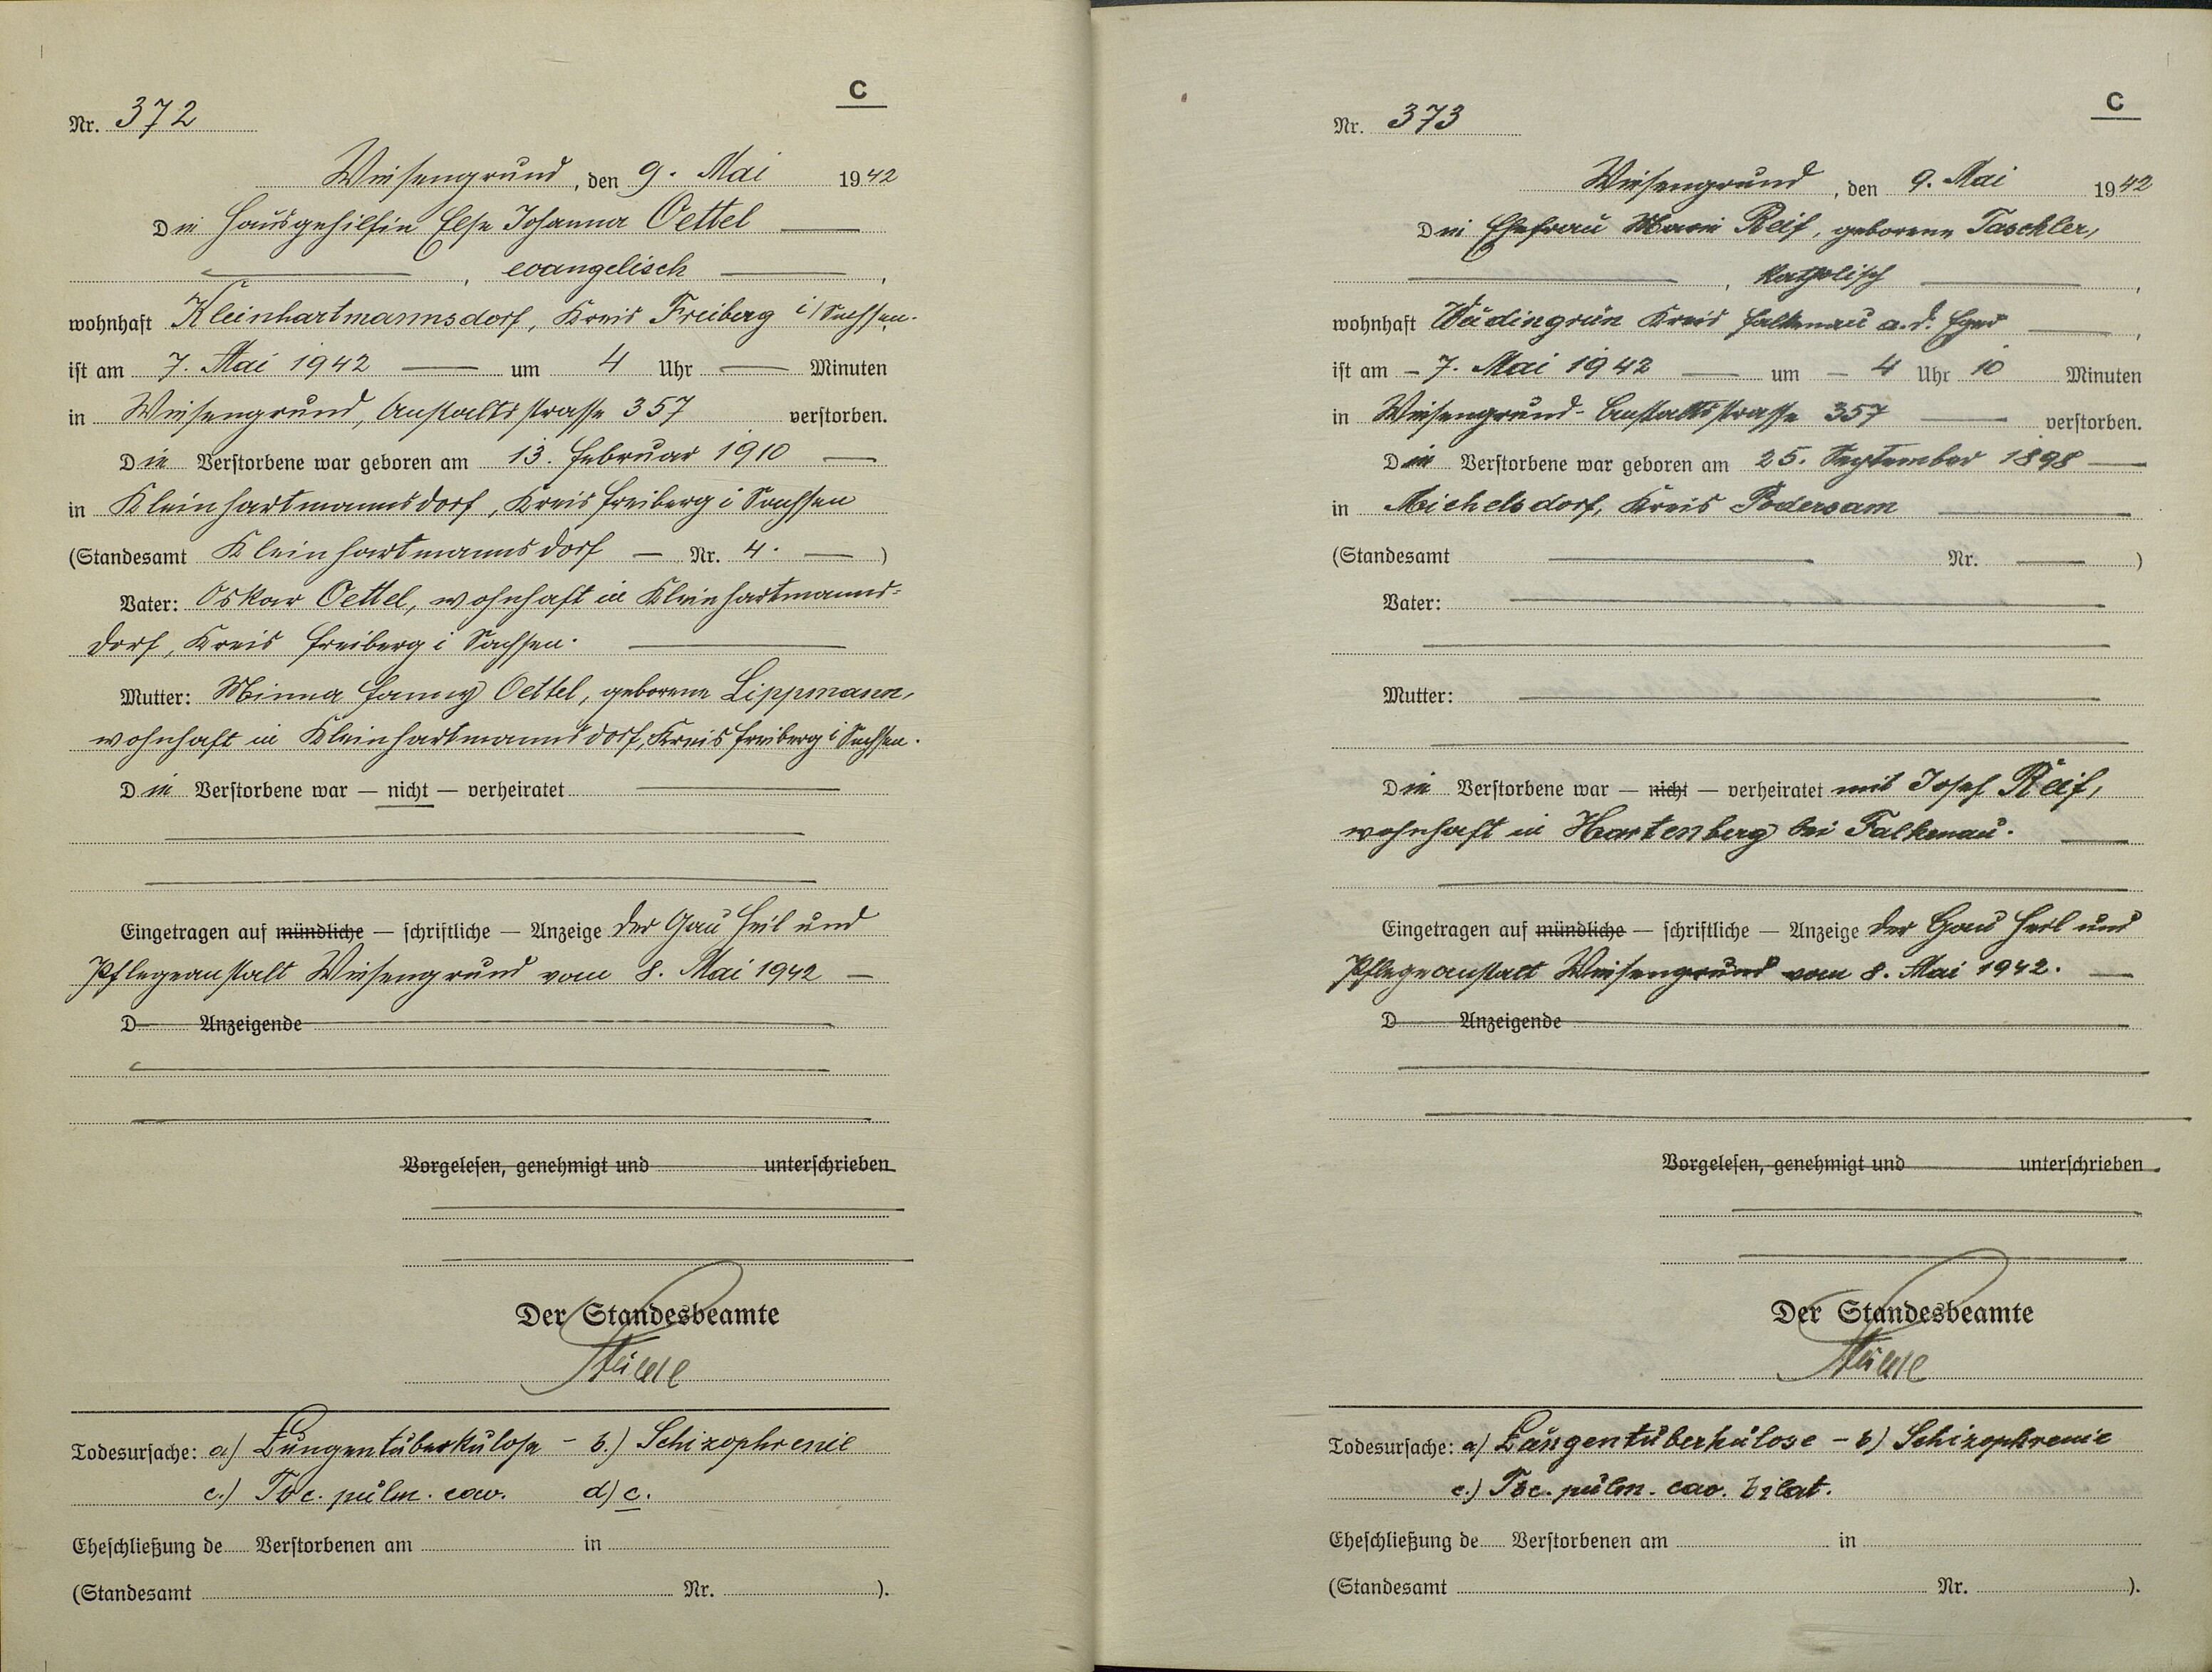 C
Nr. 372
Wiesengrund, den 9. Mai 1942
Die Hausgehilfin Else Johanna Oettel
, evangelisch ,
wohnhaft Kleinhartmannsdorf, Kreis Freiberg i/Sachsen.
ist am 7. Mai 1942 um 4 Uhr Minuten
in Wiesengrund, Anstaltsstrasse 357 verstorben.
Die Verstorbene war geboren am 13. Februar 1910
in Kleinhartmannsdorf, Kreis Freiberg i Sachsen
(Standesamt Kleinhartmannsdorf — Nr. 4. — )
Vater: Oskar Oettel, wohnhaft in Kleinhartmanns-
dorf, Kreis Freiberg i Sachsen.
Mutter: Minna Fanny Oettel, geborene Lippmann,
wohnhaft in Kleinhartmannsdorf, Kreis Freiberg i Sachsen.
Die Verstorbene war — nicht — verheiratet
Eingetragen auf mündliche — schriftliche — Anzeige der Gau Heil und
Pflegeanstalt Wiesengrund vom 8. Mai 1942 —
D Anzeigende
Vorgelesen, genehmigt und unterschrieben
Der Standesbeamte
Todesursache: a) Lungentüberkülose - b.) Schizophrenie
c.) Tbc. pülm. cav. d) c.
Eheschließung de Verstorbenen am in
(Standesamt Nr. ).
C
Nr. 373
Wiesengrund, den 9. Mai 1942
Die Ehefrau Marie Reif, geborene Taschler,
, katholisch ,
wohnhaft Kreis Falkenau a.d. Eger ,
ist am - 7. Mai 1942 — um — 4 Uhr 10 Minuten
in Wiesengrund - Anstaltsstrasse 357 verstorben.
Die Verstorbene war geboren am 25. September 1898
in Michelsdorf, Kreis Podersam
(Standesamt Nr. )
Vater:
Mutter:
Die Verstorbene war — nicht — verheiratet mit Josef Reif,
wohnhaft in Hartenberg bei Falkenau.
Eingetragen auf mündliche — schriftliche — Anzeige der Gau Heil und
Pflegeanstalt Wiesengrund vom 8. Mai 1942.
D Anzeigende
Vorgelesen, genehmigt und unterschrieben
Der Standesbeamte
Todesursache: a) Lungentüberkülose - b) Schizophrenie
c.) Tbc. pülm. cav. bilat.
Eheschließung de Verstorbenen am in
(Standesamt Nr. ).